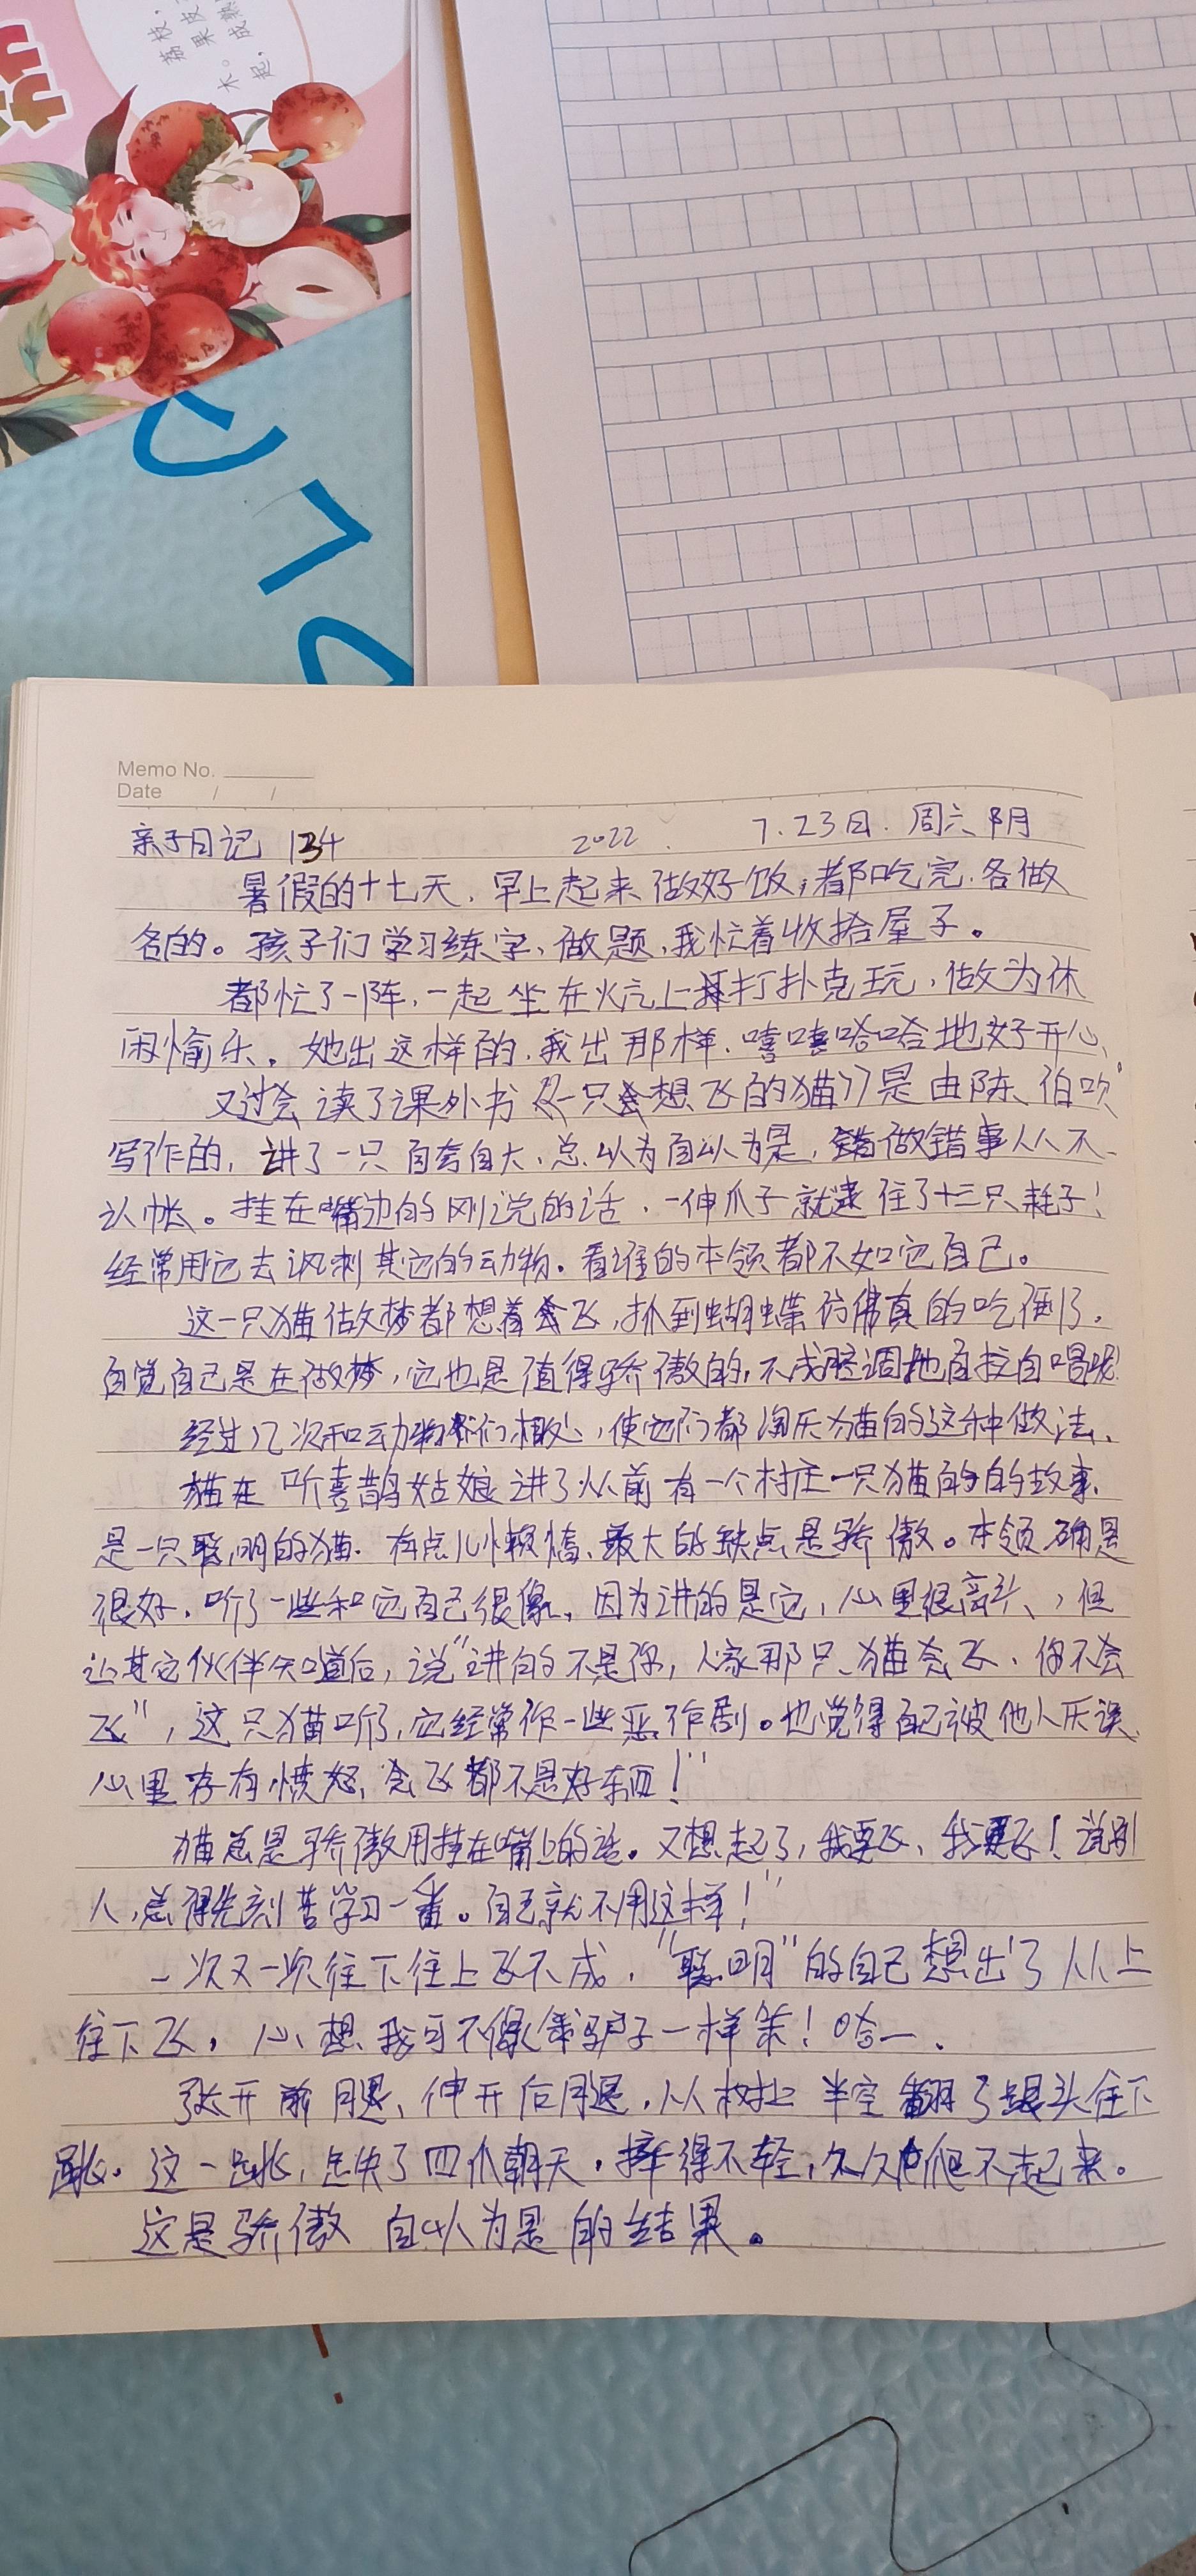 荔枝
果皮
不。
成熟
起，
Memo No.
Date / /
亲子日记 134 2022. 7.23日. 周六 阴
暑假的十七天，早上起来做好饭，都吃完.各做
各的。孩子们学习练字、做题，我忙着收拾屋子。
都忙了一阵，一起坐在火炕上打扑克玩，做为休
闲愉乐。她出这样的，我出那样、嘻嘻哈哈地好开心、
又过会读了课外书《一只会想飞的猫》是由陈、伯吹
写作的，讲了一只自夸自大、总以为自以为是，做错事从不
认帐。挂在嘴边的刚说的话，一伸爪子就逮住了十三只耗子！
经常用它去讽刺其它的动物。看谁的本领都不如它自己。
这一只猫做梦都想着会飞，抓到蝴蝶仿佛真的吃倒了，
自觉自己是在做梦，它也是值得骄傲的，不成腔调地自拉自唱呢
经过几次和动物们相处，使它们都淘厌猫的这种做法、
猫在听喜鹊姑娘讲了从前有一个村庄一只猫的的故事.
是一只聪明的猫. 有点儿小懒惰、最大的缺点是骄傲。本领确是
很好，听了一些和它自己很像，因为讲的是它，心里很高兴，但
让其它伙伴知道后，说“讲的不是你，人家那只猫会飞、你不会
飞”，这只猫听了，它经常作一些恶作剧。也觉得自己被他人厌误、
心里存有愤怒，会飞都不是好东西！”
猫总是骄傲用挂在嘴上的话。又想起了，我要飞、我要飞！说别
人，总得先刻苦学习一番。自己就不用这样！”
一次又一次往下往上飞不成，“聪明”的自己想出了从上
往下飞，心想我可不像笨驴子一样笨！哈一、
张开前腿、伸开后腿，从树上半空翻了跟头往下
跳。这一跳，跌了四爪朝天，摔得不轻，久久爬不起来。
这是骄傲自以为是的结果。